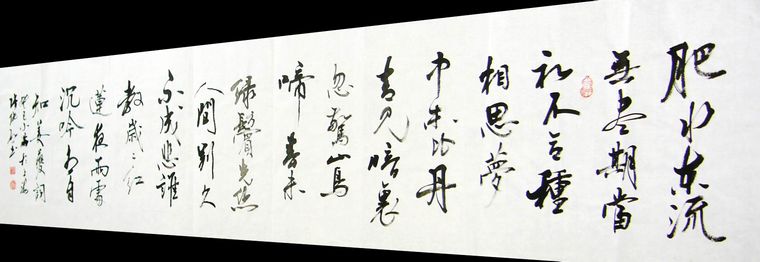 肥水東流
無盡期當
初不合種
相思夢
中未比丹
青見暗裏
忽驚山鳥
啼春未
綠鬢先絲
人間別久
不成悲誰
教歲々紅
蓮夜兩處
沉吟各自
知姜夔詞